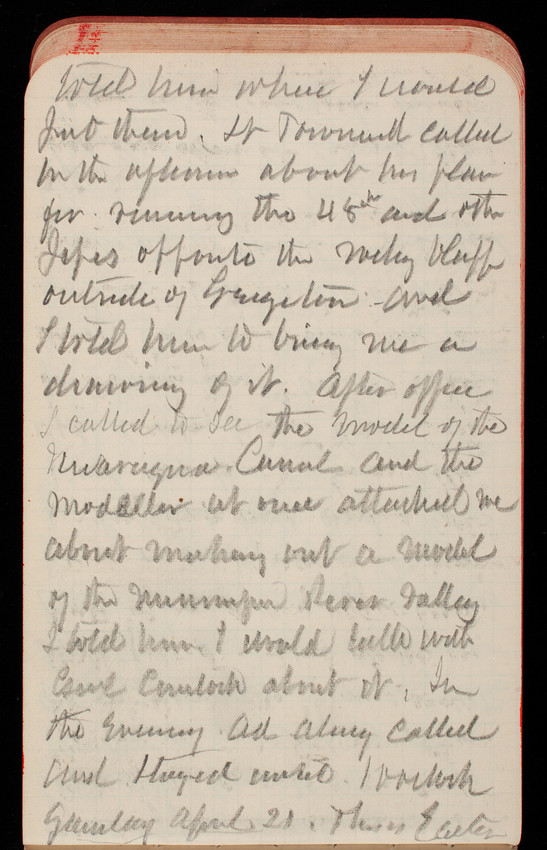 told him where I would
find them. Lt Townsend called
in the afternoon about his plan
for running the 48" and other
pipes opposite the rocky bluff
outside of Georgetown and
I told him to bring me a
drawing of it. After office
I called to see the Model of the
Nicaragua Canal and the
Modeller at once attacked me
about making out a Model
of the Mississippi River Valley
I told him I would talk with
Genl Comstock about it. In
the Evening Ad Alvey called
and stayed until 10 oclock
Sunday April 21. This is Easter